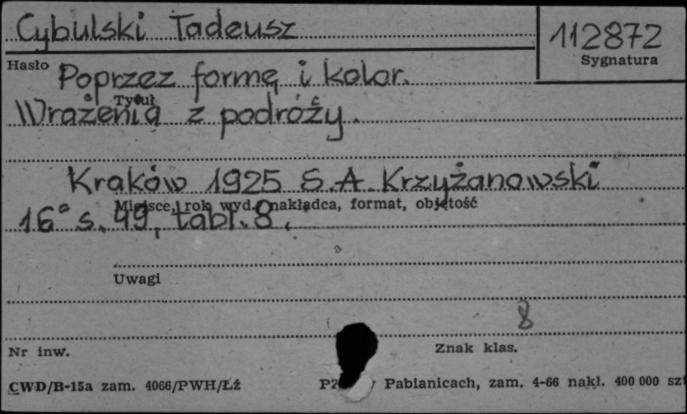 Cybulski Tadeusz
112872
Hasło
Sygnatura
Poprzez formę i kolor.
Tytuł
Wrażenia z podróży.
Kraków 1925 S.A. Krzyżanowski
Miejsce, rok wyd., nakładca, format, objętość
16° s. 49, tabl. 8.
Uwagi
8
Nr inw.
Znak klas.
CWD/B-15a zam. 4066/PWH/Łź
Pabianicach, zam. 4-66 nakł. 400 000